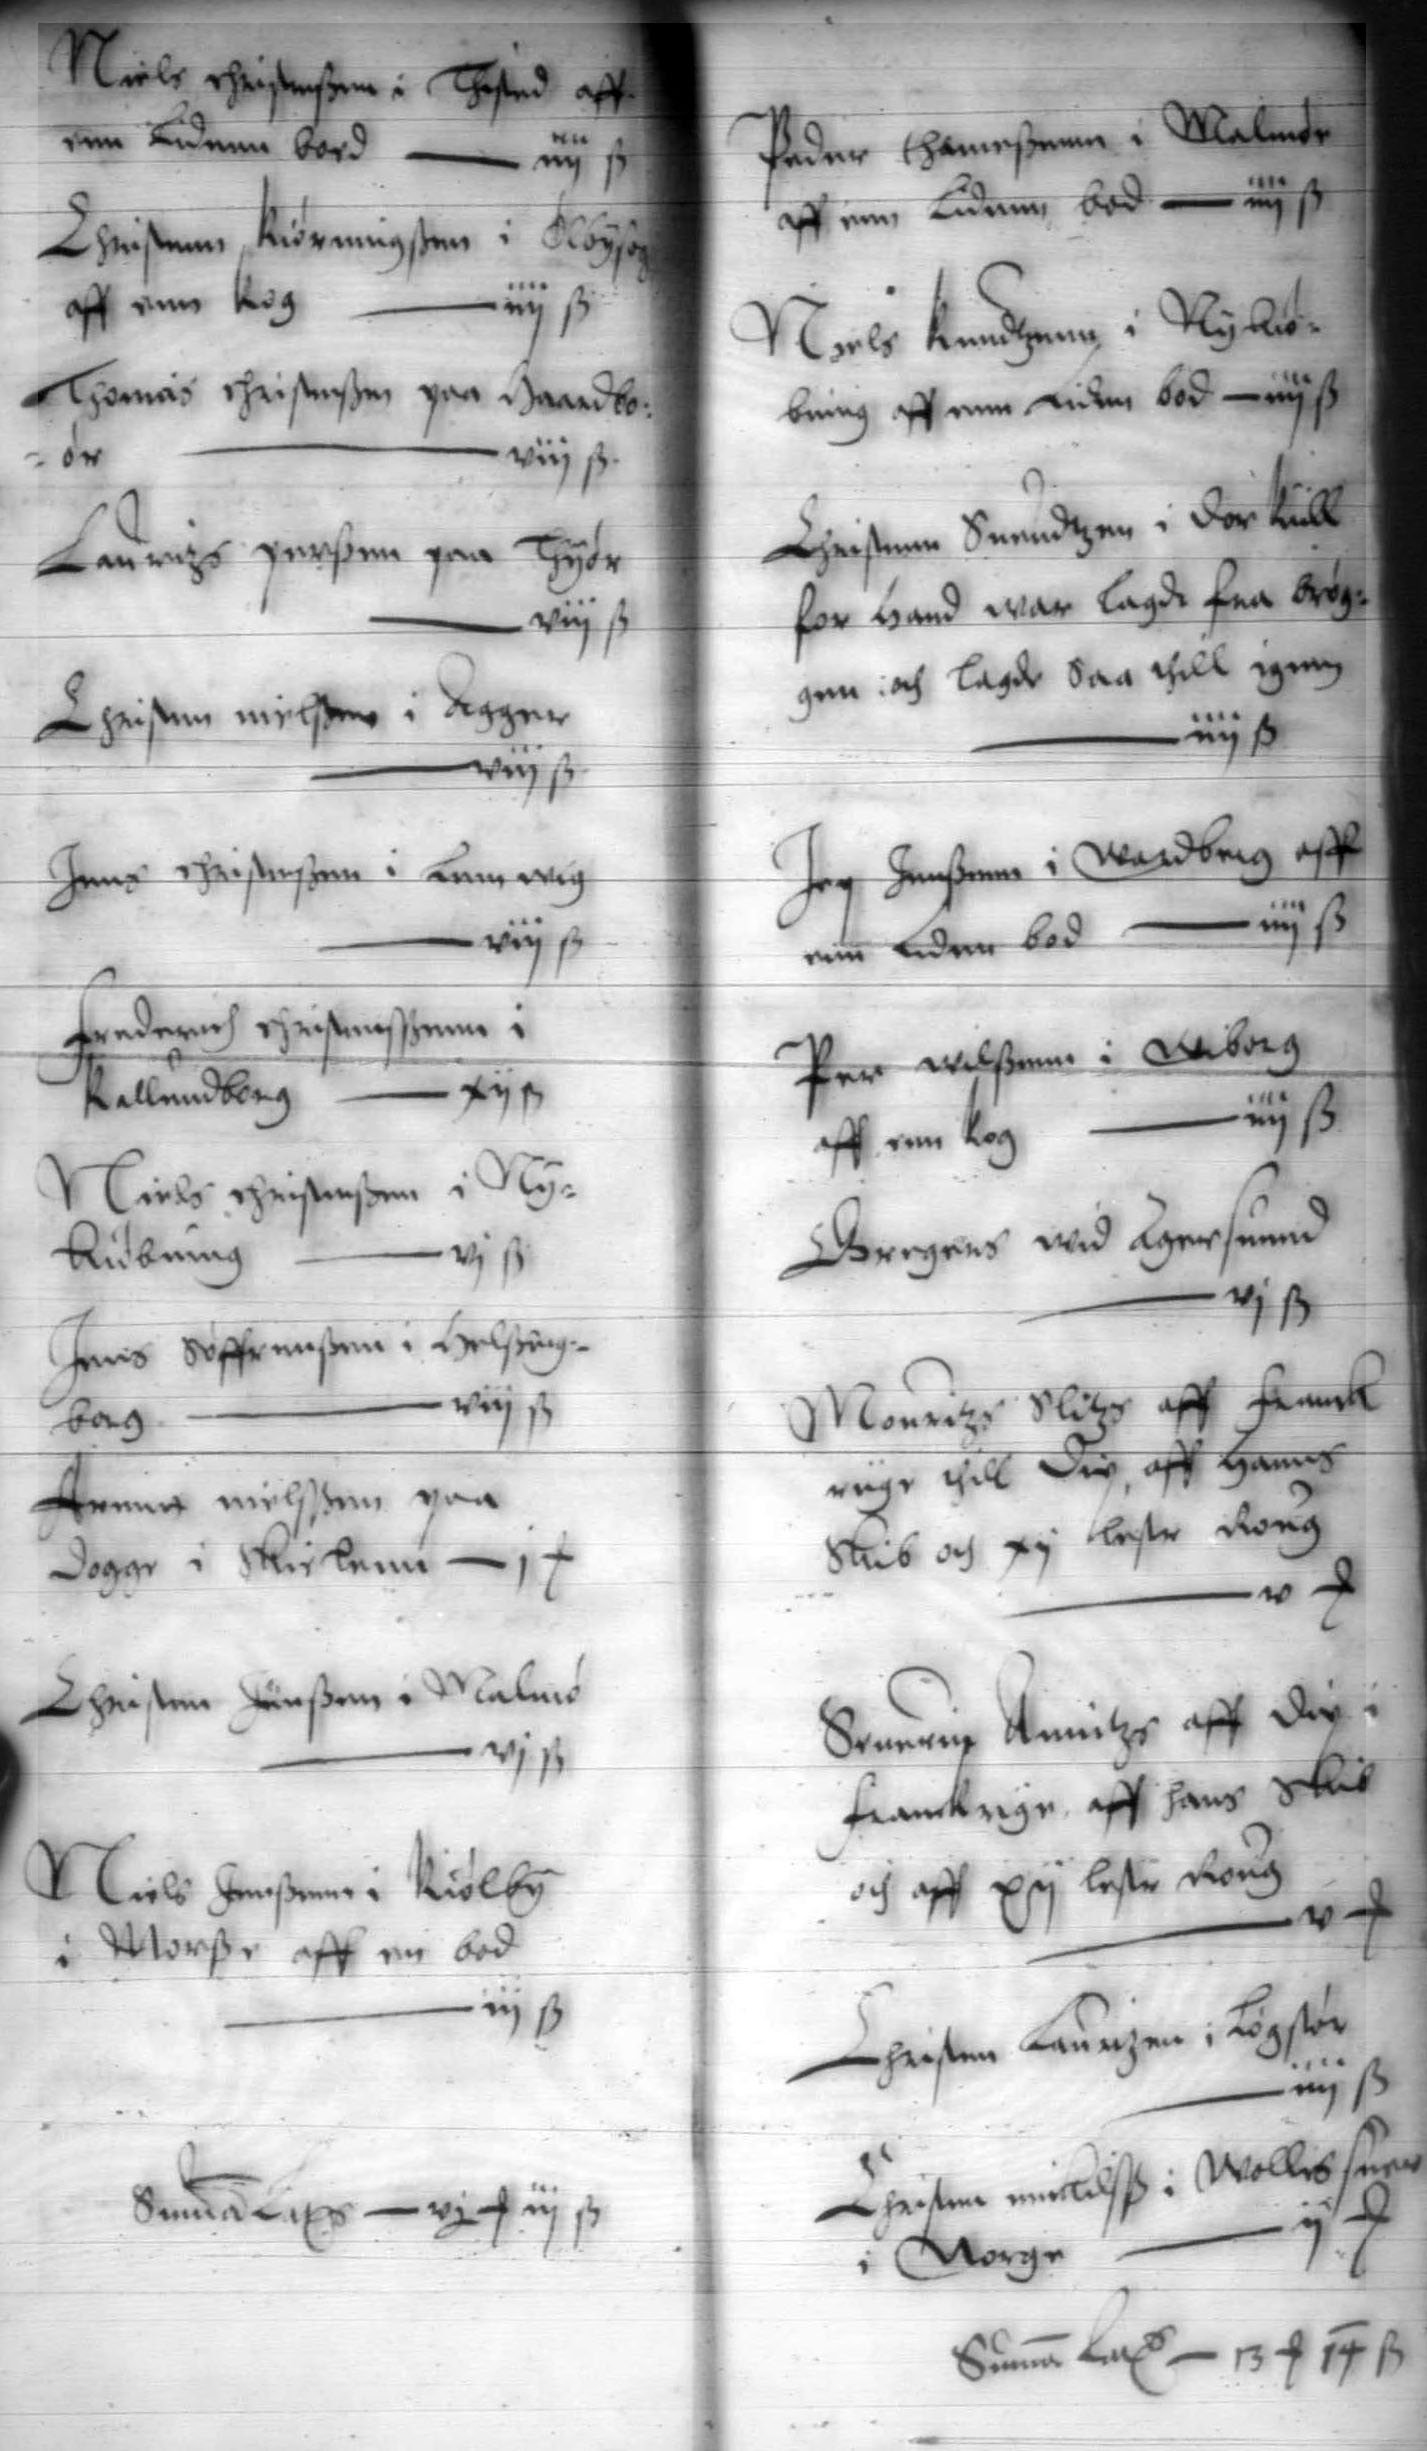 Niels christenßen i Thisted aff
enn Lidenn bord — iiij ß
Christenn Kiørningßen i Olbÿsog
aff enn Kog — iiij ß
Thomas christenßen paa Haardbo-
ør — viij ß
Lauritzs perßenn paa Thÿør
— viij ß
Christenn nielßenn i Agger
— viij ß
Jens christenßenn i Lemwig
— viij ß
Frederich christenssenn i
Kallundborg — xij ß
Niels christenßenn i Nÿ-
kiøbning — vj ß
Jens Søffrenßenn i Helsing-
borg — viij ß
nielssenn paa
Dogge i — j
Christenn Jenßenn i Malmø
— vj ß
Niels Jenßenn i Kiølbÿ
i Morße aff en bod
— iij ß
Summa — vj iij ß
Peder thameßenn i Malmøe
aff enn Lidenn bod — iiij ß
Niels Knudtzenn i Nÿkiø-
bning aff enn Liden bod — iiij ß
Christenn Suendtzen i
for Hand war lagde fra brøg-
gen och lagde Saa thill igenn
— iiij ß
Jep Jenßenn i Wardberg aff
enn Liden bod — iiij ß
Per nielßenn i Wiborg
aff enn Kog — iiij ß
Gregers wid Agersunnd
— vj ß
Mouritzs Slitzs aff Franck
rige thill Diip, aff Hanns
Skib och xij lester Roug
— v
Seuerin aff Diip i
Franckrige, aff hans Skib
och aff xij lester Roug
— v
Christen Lauritzen i Løgstør
— iiij ß
Christen michelss i Wollis
i Norge — ij
Summa — 13 14 ß